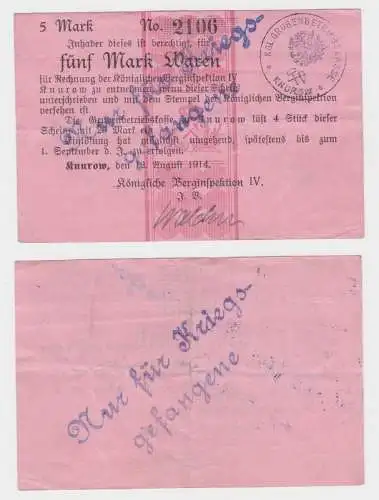 5 Mark No. 2106
Inhaber dieses ist berechtigt, für
fünf Mark Waren
für Rechnung der Königlichen Berginspektion IV
Knurow zu entnehmen, wenn dieser Schein
unterschrieben und mit dem Stempel der Königlichen Berginspektion
versehen ist.
Die Grubenbetriebskasse Knurow löst 4 Stück dieser
Scheine mit Mark ein.
Einlösung hat möglichst umgehend, spätestens bis zum
1. September d. J. zu erfolgen.
Knurow, den 12. August 1914.
Königliche Berginspektion IV.
J. V.
KGL. GRUBENBETRIEBSKASSE
KNUROW
Nur für Kriegs-
gefangene
Nur für Kriegs-
gefangene